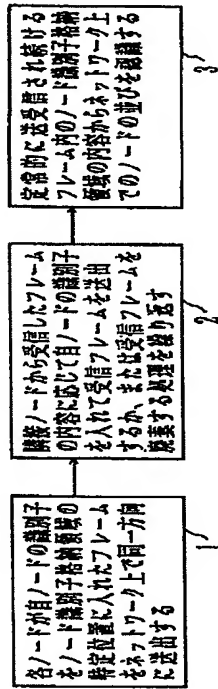 各ノードが自ノードの識別子
をノード識別子格納領域の
特定位置に入れたフレーム
をネットワーク上で同一方向
に送出する
1
隣接ノードから受信したフレーム
の内容に応じて自ノードの識別子
を入れて受信フレームを送出
するか、または受信フレームを
廃棄する処理を繰り返す
2
定常的に送受信され続ける
フレーム内のノード識別子格納
領域の内容からネットワーク上
でのノードの並びを認識する
3